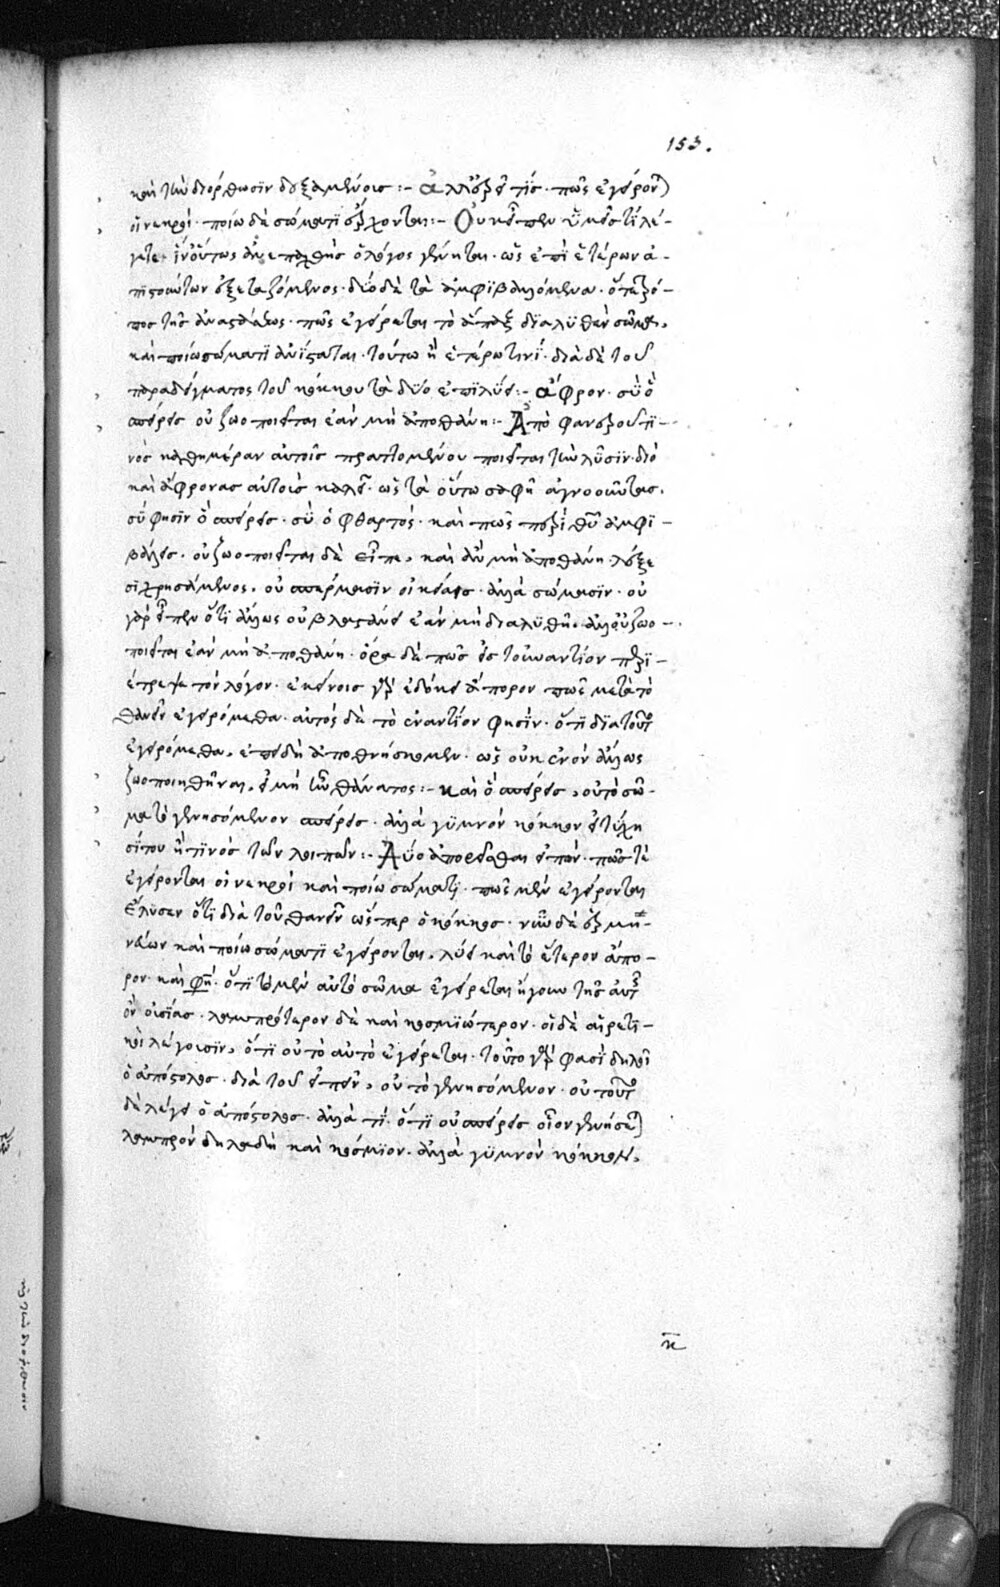 153.
καὶ τὴν διόρθωσϊν δεξαμένοις :- ἀλλ' ἐρεῖ τίς· πῶς ἐγείρονται
οἱ νεκροί· ποίω δὲ σώματι ἔρχονται :- Οὐκ εἶπεν ὑμεῖς τί λέ-
γετε· ἵν' οὕτως ἀνεπαχθὴς ὁ λόγος γένηται· ὡς ἐπὶ ἑτέρων ἀ-
πϊστούντων ἐξεταζόμενος· δύο δὲ τὰ ἀμφϊβαλλόμενα· ὅ τε τρό-
πος τῆς ἀναστάσεως· πῶς ἐγείρεται τὸ ἅπαξ διαλυθὲν σῶμα,
καὶ ποίω σώματϊ ἀνίσταται· τούτω ἢ ἑτέρω τινί· διὰ δὲ τοῦ
παραδείγματος τοῦ κόκκου τὰ δύο ἐπιλύει :- ἄφρον· σὺ ὃ
σπείρεις οὐ ζωοποιεῖται ἐὰν μὴ ἀποθάνη :- Ἀπὸ φανεροῦ τϊ-
νὸς καθημέραν αὐτοῖς πραττομένου ποιεῖται τὴν λύσϊν· διὸ
καὶ ἄφρονας αὐτοὺς καλεῖ· ὡς τὰ οὕτω σαφῆ ἀγνοοῦντας.
σύ φησϊν ὃ σπείρεις· σὺ ὁ φθαρτός· καὶ πῶς περὶ θεοῦ ἀμφϊ-
βάλλεις· οὐ ζωοποιεῖται δὲ εἶπε, καὶ ἂν μὴ ἀποθάνη λέξε
σϊ χρησάμενος, οὐ σπέρμασϊν οἰκείαις· ἀλλὰ σώμασϊν· οὐ
γὰρ εἶπεν ὅτϊ ἄλλως οὐ βλαστάνει ἐὰν μὴ διαλυθῆ. ἀλλ' οὐ ζωο-
ποιεῖται ἐὰν μὴ ἀποθάνη· ὅρα δὲ πῶς εἰς τοὐναντίον περϊ-
έτρεψε τὸν λόγον· ἐκείνοις γὰρ ἐδόκει ἄπορον πῶς μετὰ τὸ
θανεῖν ἐγειρόμεθα· αὐτὸς δὲ τὸ ἐναντίον φησϊν· ὅτϊ διὰ τοῦτο
ἐγειρόμεθα, ἐπειδὴ ἀποθνήσκομεν· ὡς οὐκ ἐνὸν ἄλλως
ζωοποιηθῆναι, εἰ μὴ ἦν θάνατος :- καὶ ὃ σπείρεις, οὐ τὸ σῶ-
μα τὸ γενησόμενον σπείρεις· ἀλλὰ γυμνὸν κόκκον εἰ τύχη
σίτου ἤ τϊνος τῶν λοιπῶν :- Δύο ἀπορεῖσθαι εἰπὼν· πῶς τὲ
ἐγείρονται οἱ νεκροί καὶ ποίω σώματϊ· πῶς μὲν ἐγείρονται
ἔλυσεν ὅτϊ διὰ τοῦ θανεῖν ὥσπερ ὁ κόκκος· νῦν δὲ ἑρμη-
νεύων καὶ ποίω σώματϊ ἐγείρονται, λύει καὶ τὸ ἕτερον ἄπο-
ρον· καὶ φησὶ· ὅτϊ τὸ μὲν αὐτὸ σῶμα ἐγείρεται ἤγουν τῆς αὐτῆς
ὂν οὐσίας· λαμπρότερον δὲ καὶ κοσμϊώτερον· οἱ δὲ αἱρετϊ-
κοὶ λέγουσϊν, ὅτϊ οὐ τὸ αὐτὸ ἐγείρεται· τοῦτο γὰρ φασὶ δηλοῖ
ὁ ἀπόστολος· διὰ τοῦ εἰπεῖν, οὐ τὸ γενησόμενον· οὐ τοῦτο
δὲ λέγει ὁ ἀπόστολος· ἀλλὰ τί· ὅτϊ οὐ σπείρεις οἷον γενήσεται
λαμπρὸν δηλαδὴ καὶ κόσμϊον· ἀλλὰ γυμνὸν κόκκον.
κ